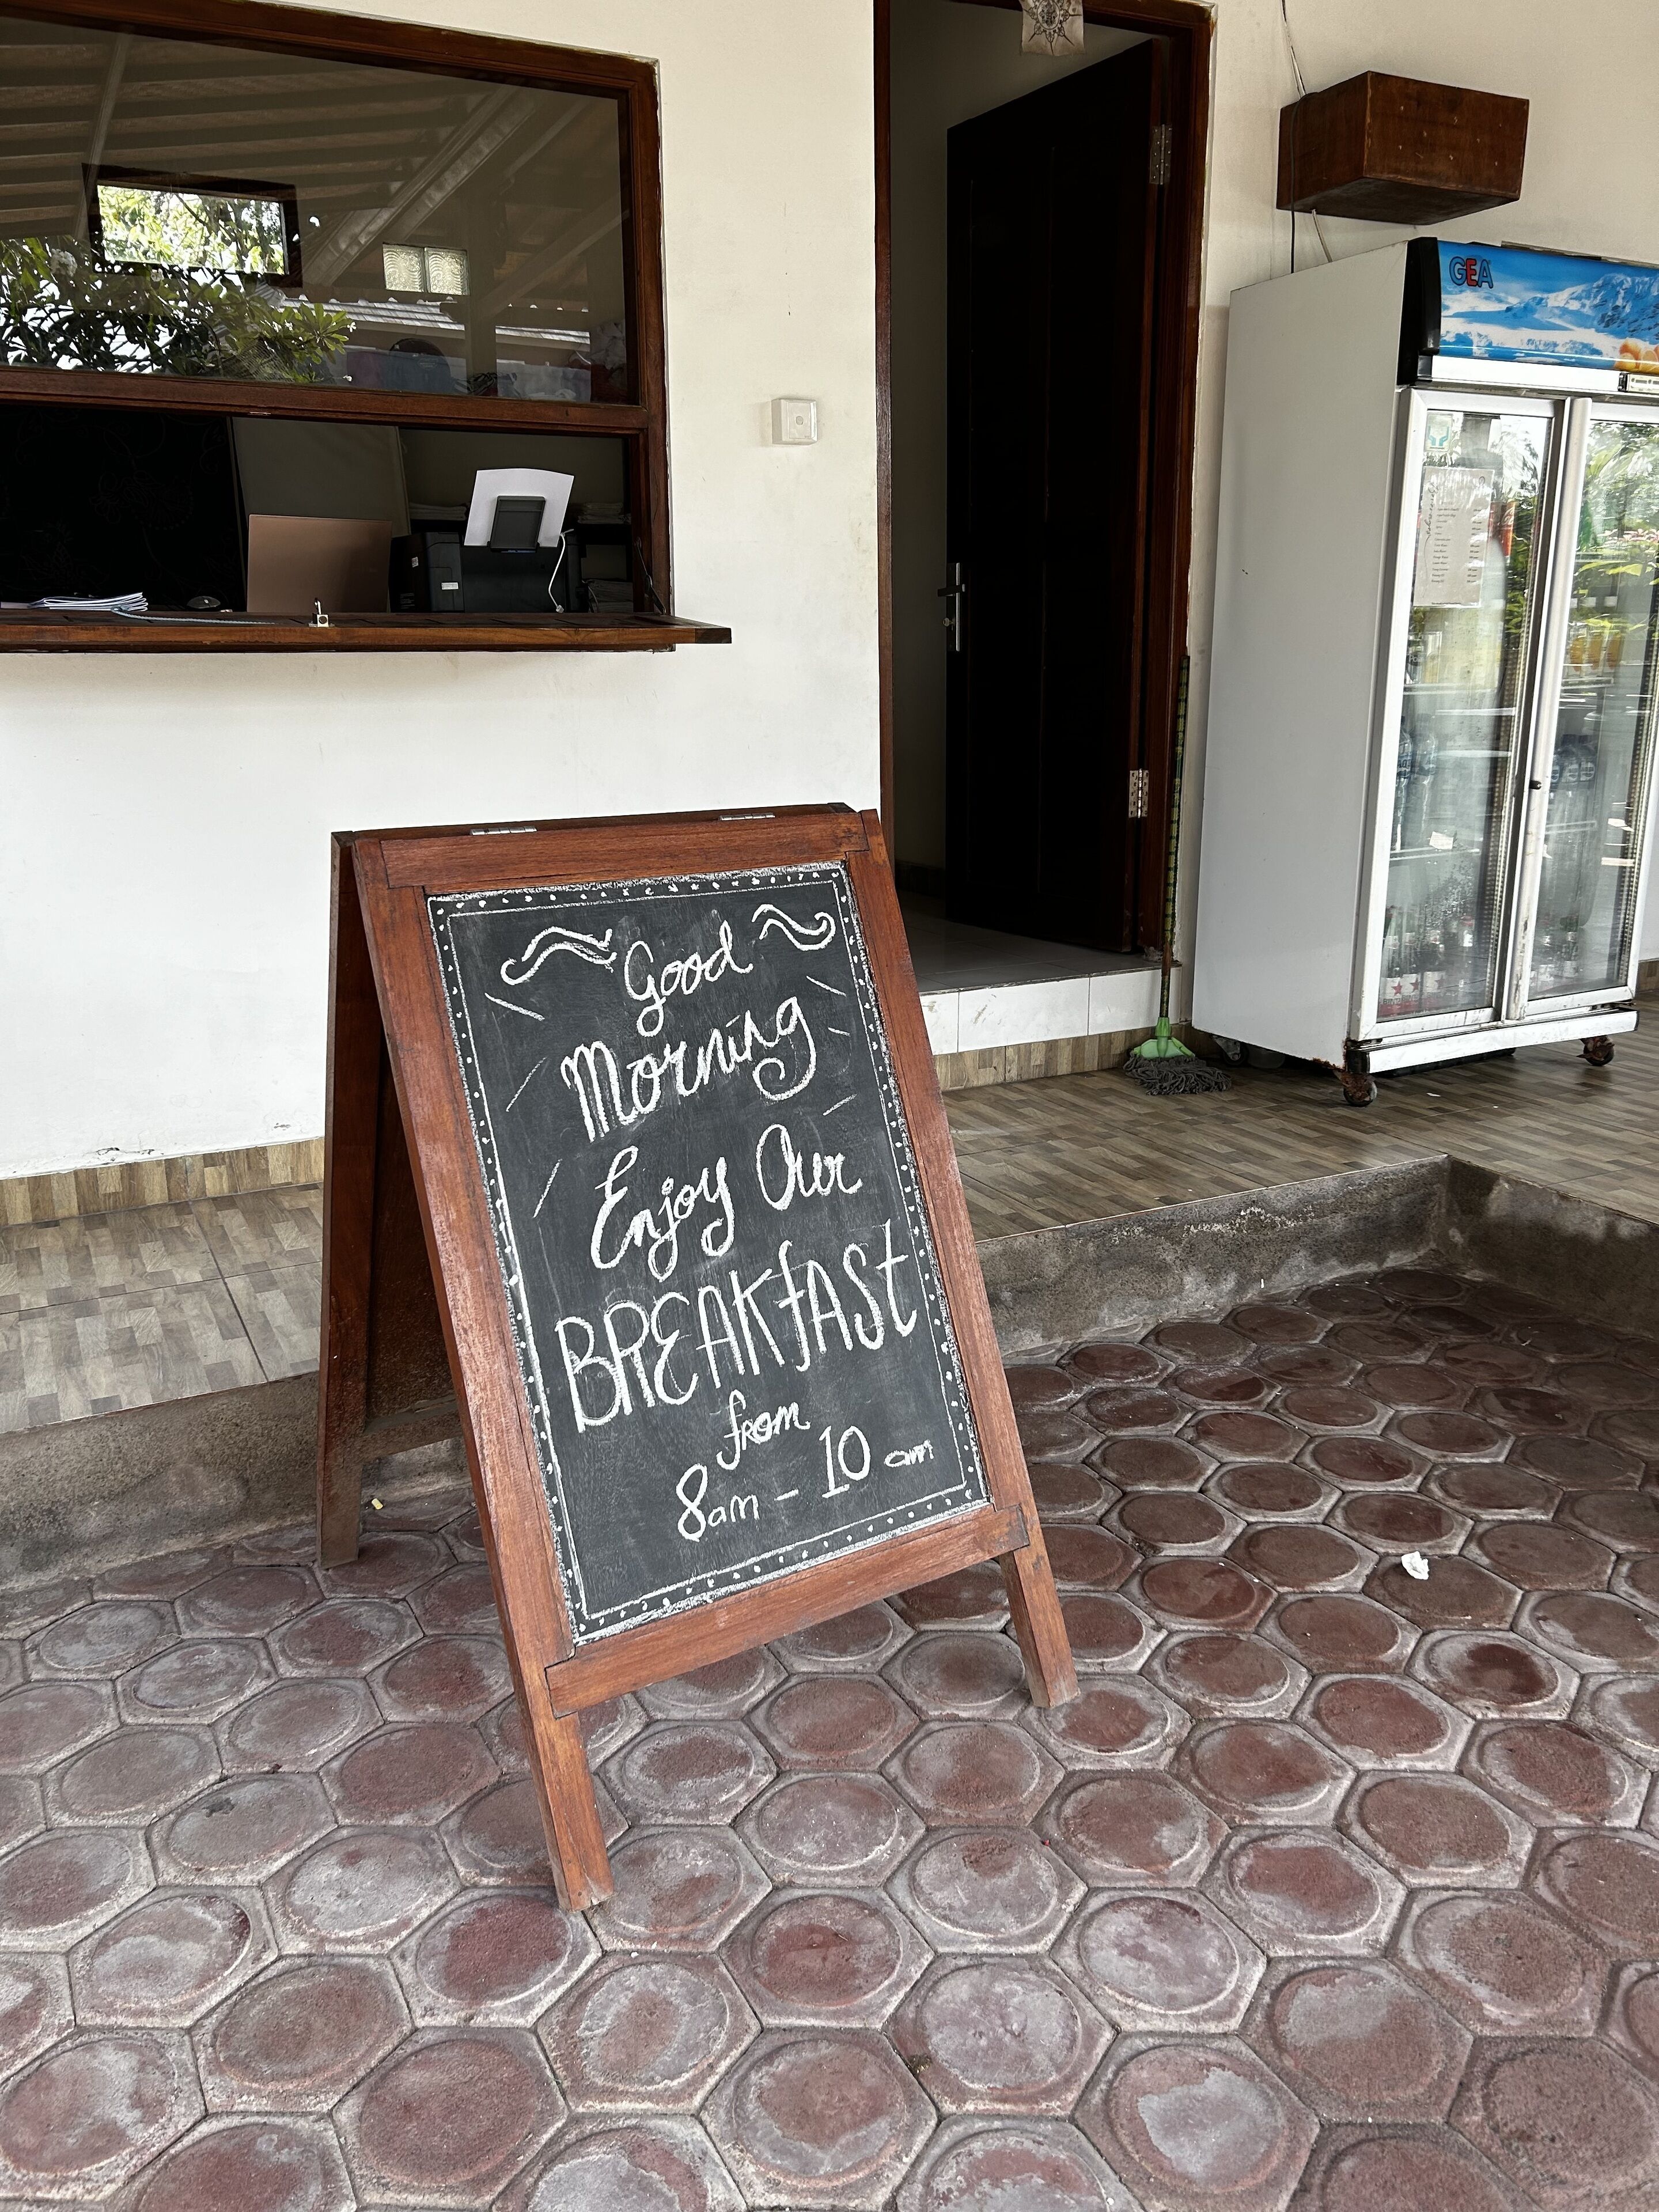 GEA
Good
Morning
Enjoy Our
BREAKfASt
from
8am - 10 am